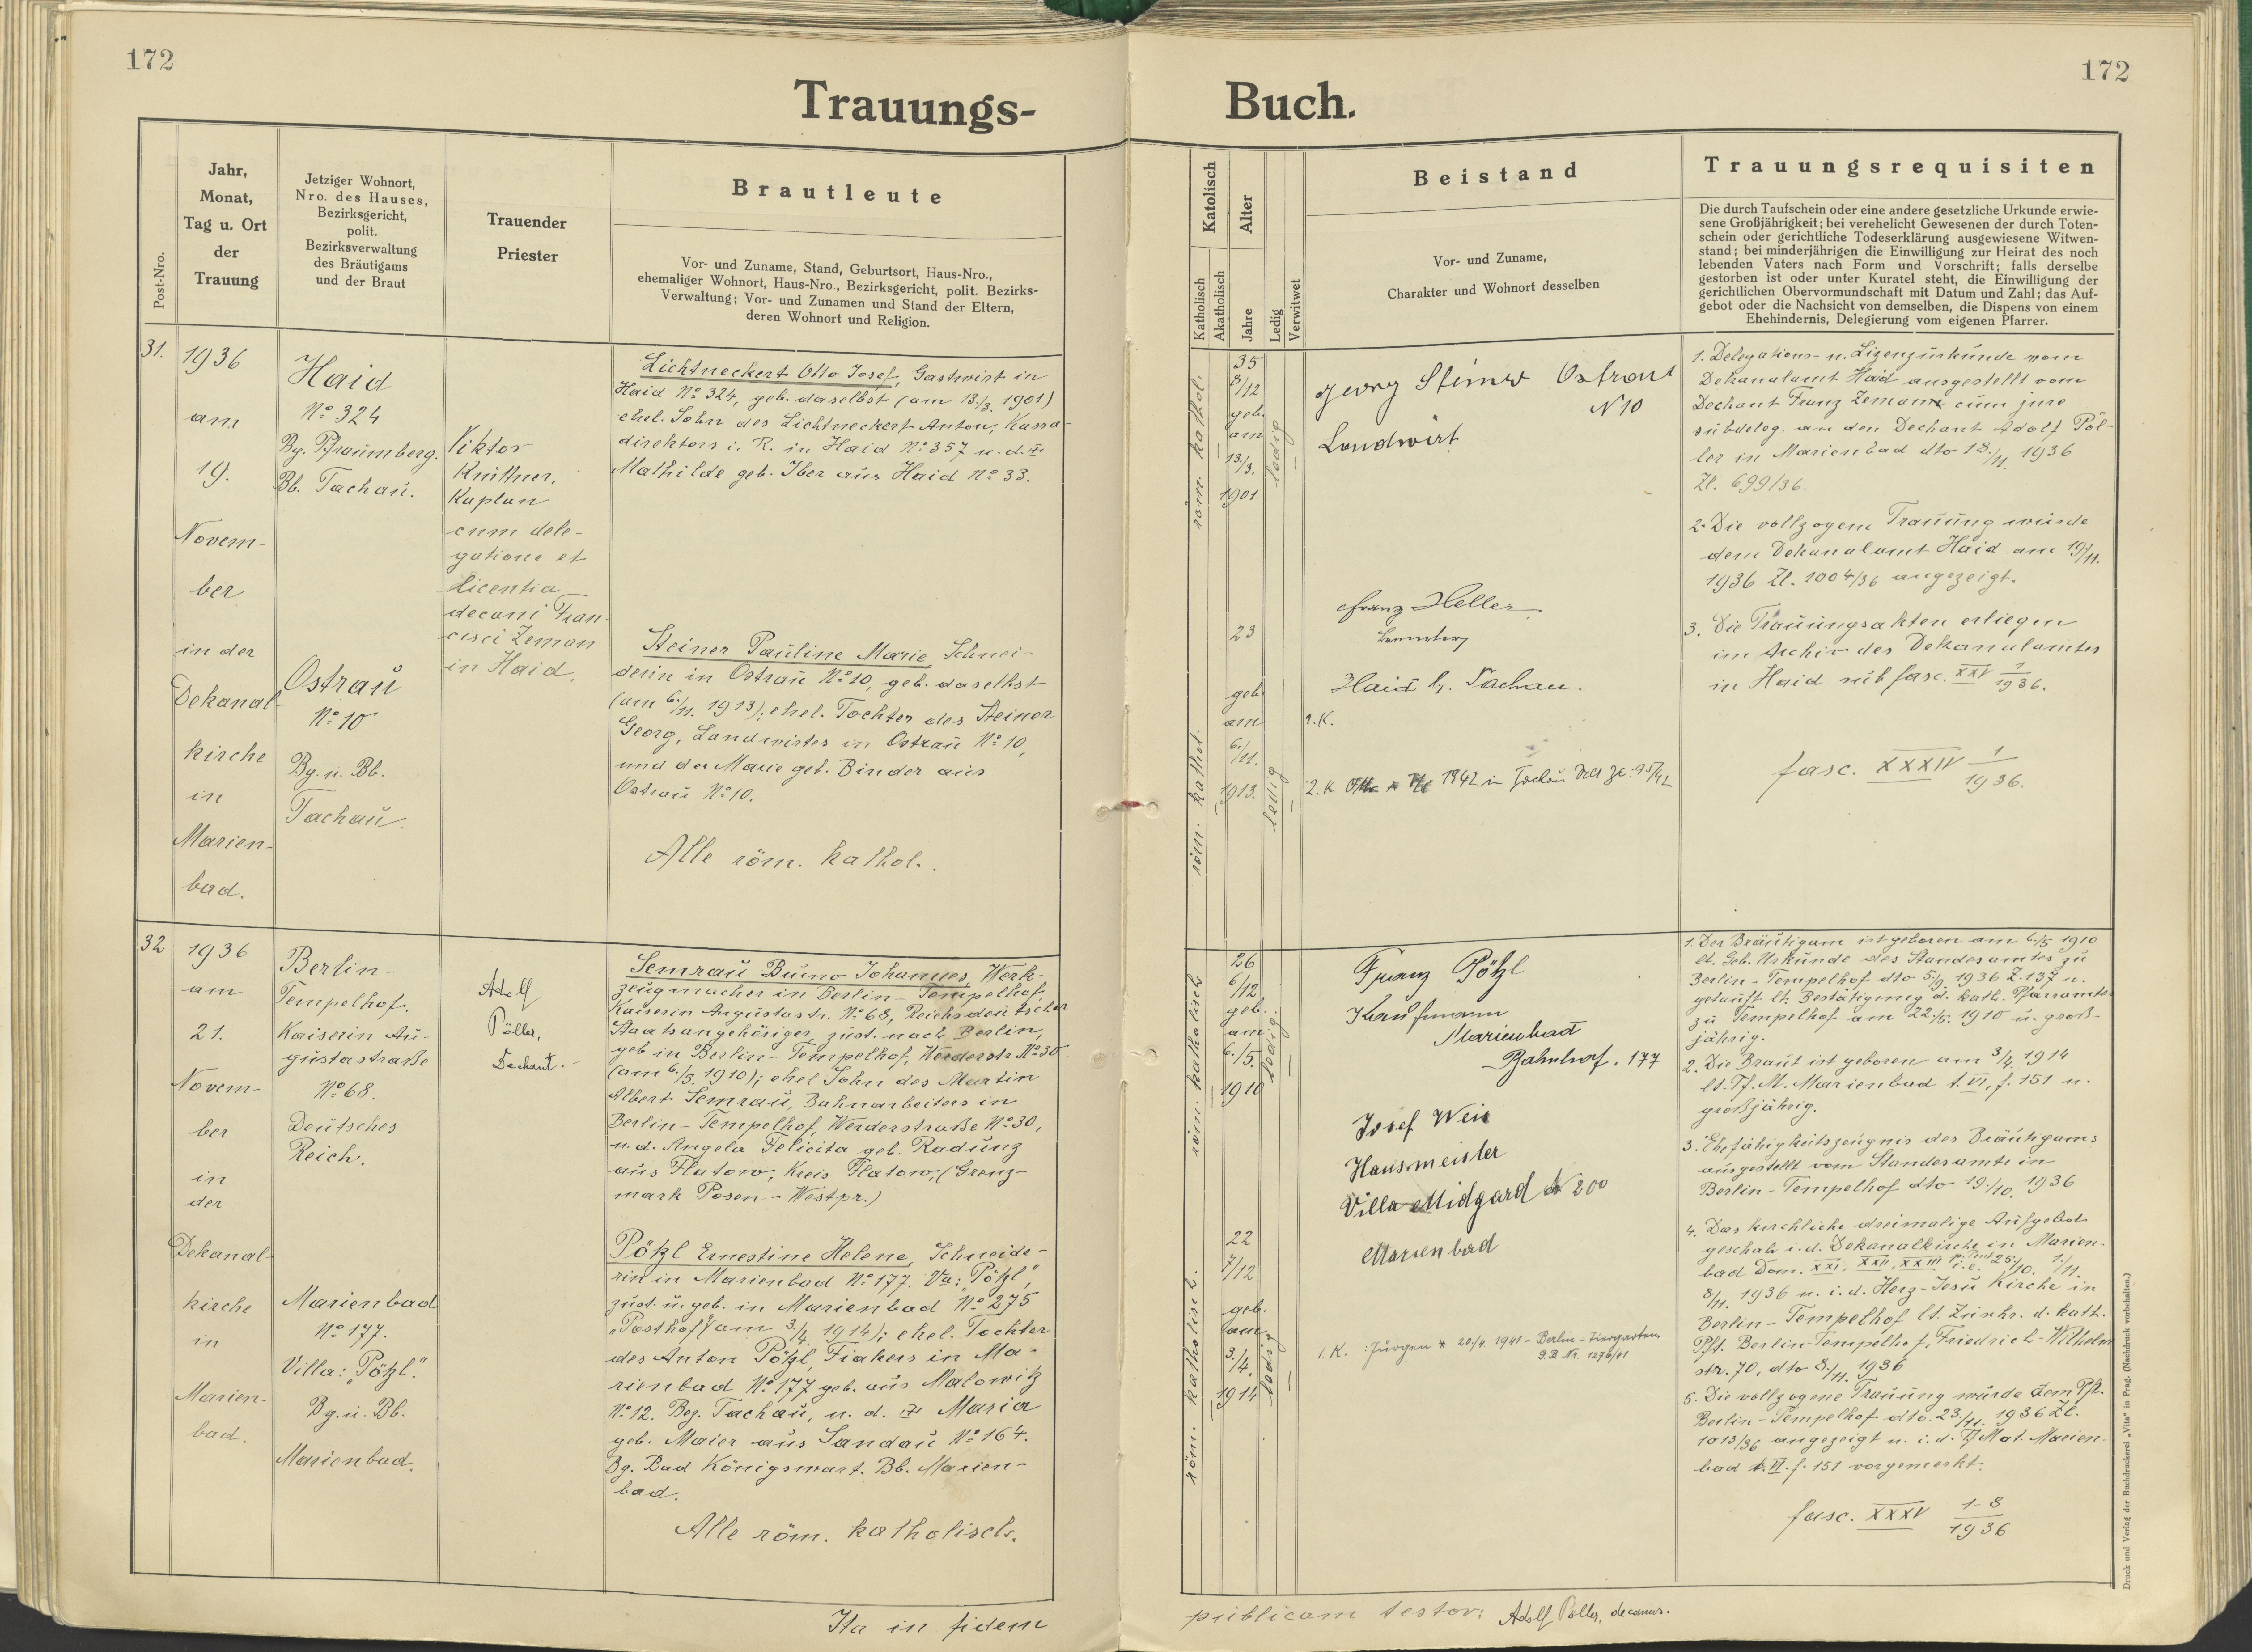 172
172
Trauungs-
Buch.
Post-Nro.
Jahr,
Monat,
Tag u. Ort
der
Trauung
Jetziger Wohnort,
Nro. des Hauses,
Bezirksgericht,
polit.
Bezirksverwaltung
des Bräutigams
und der Braut
Trauender
Priester
Brautleute
Vor- und Zuname, Stand, Geburtsort, Haus-Nro.,
ehemaliger Wohnort, Haus-Nro., Bezirksgericht, polit. Bezirks-
Verwaltung; Vor- und Zunamen und Stand der Eltern,
deren Wohnort und Religion.
Katolisch
Katholisch
Akatholisch
Alter
Jahre
Ledig
Verwitwet
Beistand
Vor- und Zuname,
Charakter und Wohnort desselben
Trauungsrequisiten
Die durch Taufschein oder eine andere gesetzliche Urkunde erwie-
sene Großjährigkeit; bei verehelicht Gewesenen der durch Toten-
schein oder gerichtliche Todeserklärung ausgewiesene Witwen-
stand; bei minderjährigen die Einwilligung zur Heirat des noch
lebenden Vaters nach Form und Vorschrift; falls derselbe
gestorben ist oder unter Kuratel steht, die Einwilligung der
gerichtlichen Obervormundschaft mit Datum und Zahl; das Auf-
gebot oder die Nachsicht von demselben, die Dispens von einem
Ehehindernis, Delegierung vom eigenen Pfarrer.
31.
1936
am
19.
Novem-
ber
in der
Dekanal-
kirche
in
Marien-
bad.
Haid
No 324
Bg. Pfraumberg.
Bb. Tachau.
Ostrau
No 10
Bg. u. Bb.
Tachau.
Viktor
Knüttner,
Kaplan
cum dele-
gatione et
licentia
decani Fran-
cisci Zeman
in Haid.
Lichtneckert Otto Josef, Gastwirt in
Haid No 324, geb. daselbst (am 13./3. 1901)
ehel. Sohn des Lichtneckert Anton, Kassa-
direktors i. R. in Haid No 357 u. d.
Mathilde geb. Iber aus Haid No 33.
Steiner Pauline Marie Schnei-
derin in Ostrau No 10, geb. daselbst
(am 6./11. 1913); ehel. Tochter des Steiner
Georg, Landwirtes in Ostrau No 10,
und der Marie geb. Binder aus
Ostrau No 10.
Alle röm. kathol.
röm. kathol.
35
8/12
geb.
am
13./3.
1901
ledig
röm. kathol.
23
geb.
am
6./11.
1913.
ledig
Georg Steiner Ostrau
N 10
Landwirt
Franz Heller
Haid b. Tachau.
1. K.
2. K 1942 in Tachau
1. Delegations- u. Lizenzurkunde vom
Dekanalamt Haid ausgestellt vom
Dechant Franz Zeman cum jure
subdeleg. an den Dechant Adolf Pöl-
ler in Marienbad dto 18./11. 1936
Zl. 699/36.
2. Die vollzogene Trauung wurde
dem Dekanalamt Haid am 19/11.
1936 Zl. 1004/36 angezeigt.
3. Die Trauungsakten erliegen
im Archiv des Dekanalamtes
in Haid sub fasc. XXV 1/1936.
fasc. XXXIV 1/1936.
32
1936
am
21.
Novem-
ber
in
der
Dekanal-
kirche
in
Marien-
bad.
Berlin-
Tempelhof.
Kaiserin Au-
gustastraße
No 68.
Deutsches
Reich.
Marienbad
No 177.
Villa: „Pötzl".
Bg. u. Bb.
Marienbad.
Adolf
Pöller,
Dechant.
Semrau Bruno Johannes, Werk-
zeugmacher in Berlin-Tempelhof,
Kaiserin Augustastr. No 68, Reichsdeutscher
Staatsangehöriger, zust. nach Berlin,
geb in Berlin-Tempelhof, Werderstr. No 30
(am 6./5. 1910); ehel. Sohn des Martin
Albert Semrau, Bahnarbeiters in
Berlin-Tempelhof, Werderstraße No 30,
u. d. Angela Felicita geb. Radunz
aus Flatow, Kreis Flatow, (Grenz-
mark Posen-Westpr.)
Pötzl Ernestine Helene, Schneide-
rin in Marienbad No 177. Va: „Pötzl",
zust. u. geb. in Marienbad No 275
„Posthof" (am 3./4. 1914); ehel. Tochter
des Anton Pötzl, Fiakers in Ma-
rienbad No 177 geb. aus Malowitz
No 12. Bez. Tachau, u. d. Maria
geb. Maier aus Sandau No 164.
Bg. Bad Königswart. Bb. Marien-
bad.
Alle röm. katholisch.
röm. katholisch
26
6/12
geb.
am
6./5.
1910
ledig.
röm. katholisch.
22
7/12
geb.
am
3./4.
1914
ledig
Franz Pötzl
Kaufmann
Marienbad
Bahnhof. 177
Josef Weis
Hausmeister
Villa Midgard N 200
Marienbad
1. K. : Jürgen * 20/4. 1941 - Berlin-Tiergarten
G.B. Nr. 1276/41
1. Der Bräutigam ist geboren am 6./5 1910
lt. Geb. Urkunde des Standesamtes zu
Berlin-Tempelhof dto 5/9. 1936 Z. 137 u.
getauft lt. Bestätigung d. kath. Pfarramtes
zu Tempelhof am 22./5. 1910 u. groß-
jährig.
2. Die Braut ist geboren am 3/4. 1914
lt. Tf. M. Marienbad t. VI, f. 151 u.
großjährig.
3. Ehefähigkeitszeugnis des Bräutigams
ausgestellt vom Standesamte in
Berlin-Tempelhof dto 19./10. 1936
4. Das kirchliche dreimalige Aufgebot
geschah i. d. Dekanalkirche in Marien-
bad Dom. XXI, XXII, XXIII p. Pent. i. e. 25./10. 1/11.
8/11. 1936 u. i. d. Herz-Jesu Kirche in
Berlin-Tempelhof lt. Zuschr. d. kath.
Pft. Berlin-Tempelhof, Friedrich-Wilhelm
str. 70, dto 8./11. 1936
5. Die vollzogene Trauung wurde dem Pft.
Berlin-Tempelhof dto. 23/11. 1936 Zl.
1013/36 angezeigt u. i. d. Tf Mat. Marien-
bad t. VI. f. 151 vorgemerkt.
fasc. XXXV 1-8/1936
Ita in fidem
publicam testor: Adolf Pöller, decanus.
Druck und Verlag der Buchdruckerei „Vita" in Prag. (Nachdruck vorbehalten.)